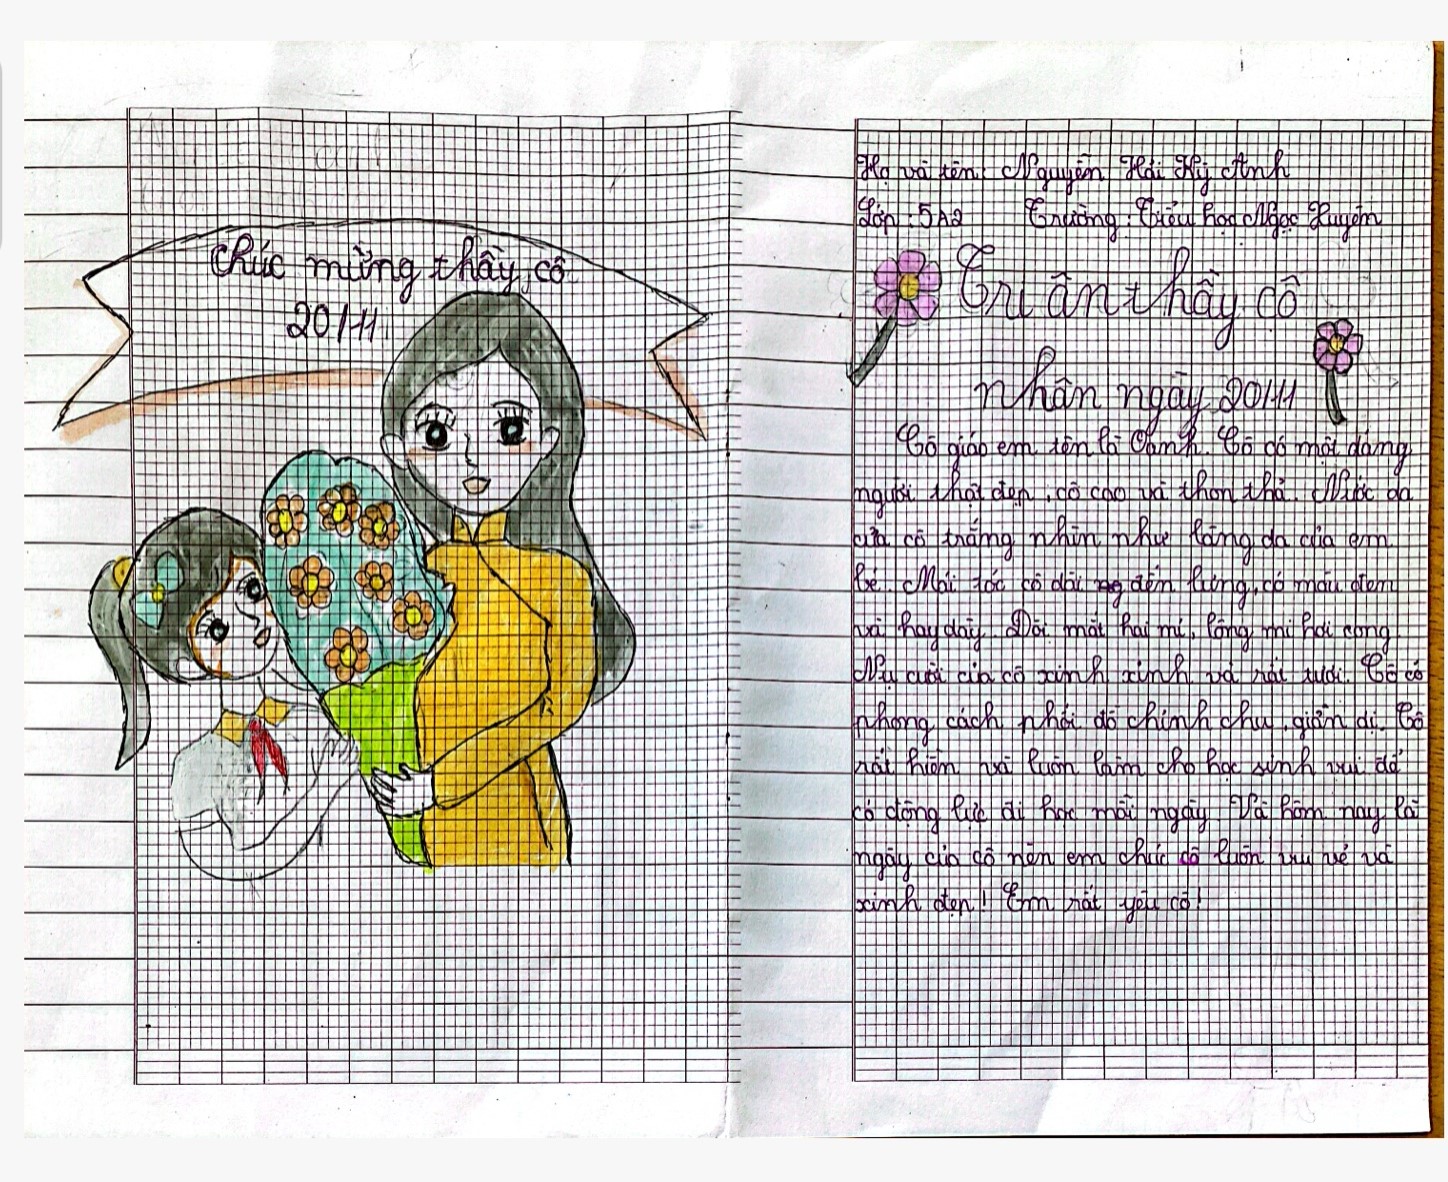 Chúc mừng thầy, cô
20/11
Họ và tên: Nguyễn Hải Kỳ Anh
Lớp: 5A2 Trường: Tiểu học Ngọc Xuyên
Tri ân thầy cô
nhân ngày 20/11
Cô giáo em tên là Oanh. Cô có một dáng
người thật đẹp, cô cao và thon thả. Nước da
của cô trắng nhìn như làng da của em
bé. Mái tóc cô dài đến lưng, có màu đem
và hay dày. Đôi mắt hai mí, lông mi hơi cong.
Nụ cười của cô xinh xinh và rất tươi. Cô có
phong cách phối đồ chỉnh chu, giản dị. Cô
rất hiền và luôn làm cho học sinh vui để
có động lực đi học mỗi ngày. Và hôm nay là
ngày của cô nên em chúc cô luôn vui vẻ và
xinh đẹp! Em rất yêu cô!